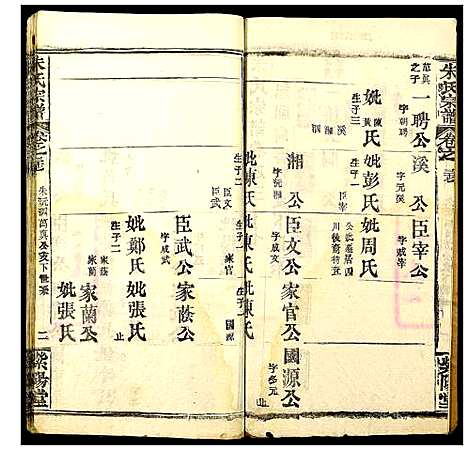 朱氏宗譜
卷之
之子
一聘公
字朝聘
溪公
字元溪
臣宰公
字咸宰
妣陳黃氏
生子三
溪
湘
妣彭氏
生子一
妣周氏
公妣產居四
川後裔待查
湘公
字沅湘
臣文公
字咸文
家官公
國源公
字多元
止
妣陳氏
生子二
臣文
臣武
妣陳氏
生子一
家官
妣陳氏
生子一
國源
臣武公
字咸武
家蔭公
止
妣鄭氏
生子二
家蔭
家蘭
妣張氏
家蘭公
妣張氏
朱氏宗譜
卷之
公支下世系
二
紫陽堂